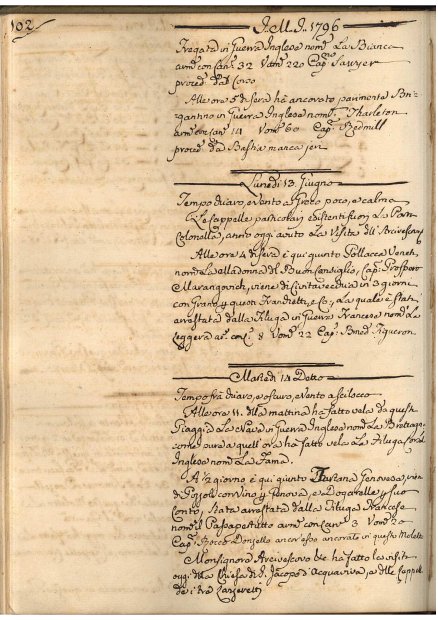 102
I. M. I. 1796
Fregata in Guerra Inglese nom.ta La Bianca
arm: con Can: 32 Uom: 220 Cap: Sawyer
proced: da Corso
Alle ore 5 di sera hà ancorato parimente Bri-
gantino in Guerra Inglese nom: Tharleton
arm: con Can: 14 Uom: 60 Cap:
proced: da Bastia manca jeri
Lunedì 13 Giugno
Tempo chiaro, e vento a Greco poco, e calma
Le Cappelle particolari esistenti fuori La Porta
Colonnella, anno oggi avuto La Visita dell' Arcivescovo
Alle ore 4 di sera è qui giunto Pollacca Venet:
nom: La Madonna del Buon Consiglio, Cap: Prospero
Marangovich, viene di Civitavecchia in 3 giorni
con Grano, q: e Co:, La quale è stata
arrestata dalla Filuga in Guerra Francese nom: La
Leggera ar: con C: 8 Uom: 22 Cap: Bned: Figueron
Martedì 14 Detto
Tempo frà chiaro, e oscuro, e vento a scilocco
Alle ore 11. della mattina ha fatto vela da questa
Piaggia La Nave in Guerra Inglese nom: La Brettagna
come pure a quell' ora hà fatto vela La Filuga
Inglese nom: La Fama.
A ½ giorno è qui giunto Tartana Genovese, viene
di Pozzoli con vino p: Genova, e Dogarelle p: suo
Conto, stata arrestata dalla Filuga Francese
nom: il Passapertutto arm: con Can: 3 Uom: 20
Cap: Rocco ancor esso ancorato in questo Moletto
Monsignore Arcivescovo hà fatto la visita
oggi della Chiesa di S. Jacopo d'Acquaviva, e delle Cappelle
de i tre Lanzeretti